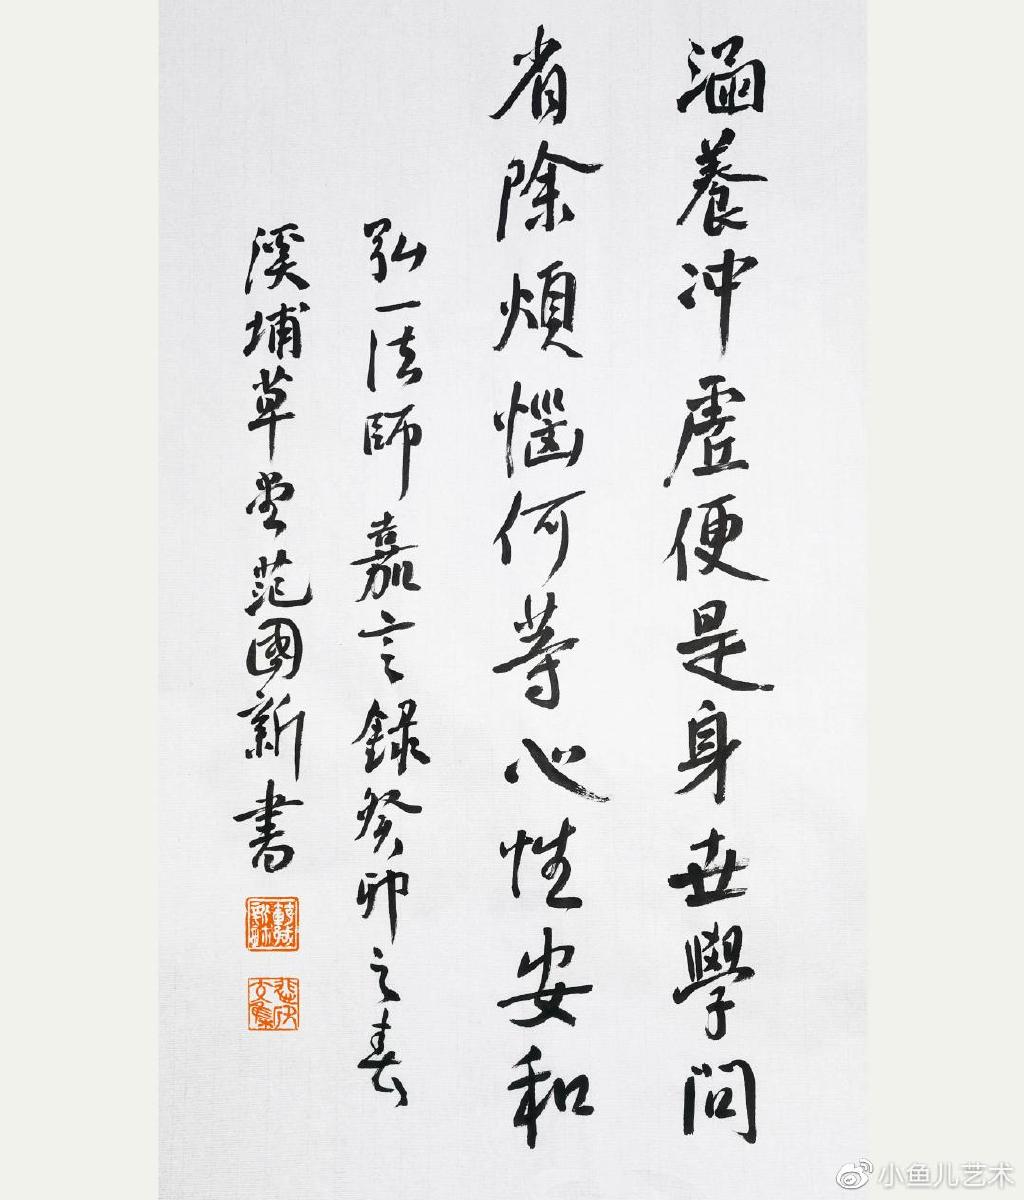 涵養冲虚便是身世學問
省除煩惱何等心性安和
弘一法師嘉言錄癸卯之春
溪埔草堂范國新書
小鱼儿艺术